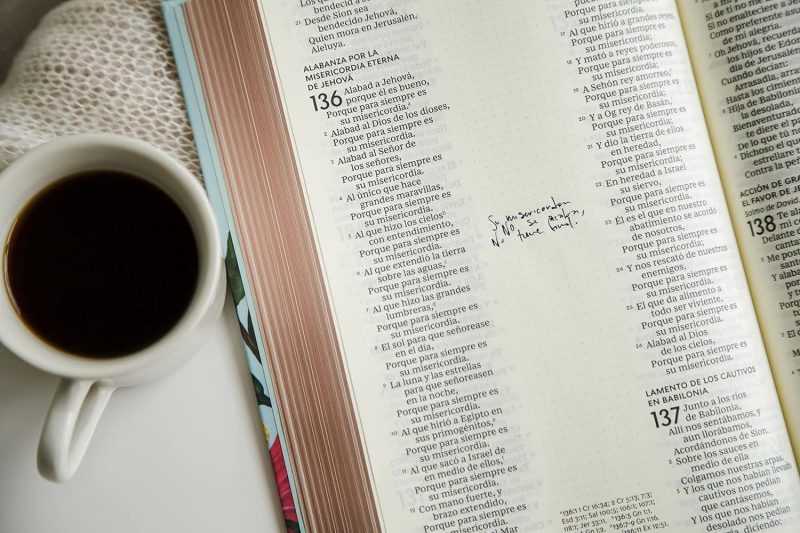 bendecido la casa
21 Desde Sion sea
bendecido Jehová,
Quien mora en Jerusalén.
Aleluya.
ALABANZA POR LA
MISERICORDIA ETERNA
DE JEHOVÁ
136 Alabad a Jehová,
porque él es bueno,
Porque para siempre es
su misericordia.
2 Alabad al Dios de los dioses,
Porque para siempre es
su misericordia.
3 Alabad al Señor de
los señores,
Porque para siempre es
su misericordia.
4 Al único que hace
grandes maravillas,
Porque para siempre es
su misericordia.
5 Al que hizo los cielos
con entendimiento,
Porque para siempre es
su misericordia.
6 Al que extendió la tierra
sobre las aguas,
Porque para siempre es
su misericordia.
7 Al que hizo las grandes
lumbreras,
Porque para siempre es
su misericordia.
8 El sol para que señorease
en el día,
Porque para siempre es
su misericordia.
9 La luna y las estrellas
para que señoreasen
en la noche,
Porque para siempre es
su misericordia.
10 Al que hirió a Egipto en
sus primogénitos,
Porque para siempre es
su misericordia.
11 Al que sacó a Israel de
en medio de ellos,
Porque para siempre es
su misericordia.
12 Con mano fuerte, y
brazo extendido,
Porque para siempre es
su misericordia.
Mar
No se acaba,
No tiene final.
Porque para siempre es
su misericordia.
17 Al que hirió a grandes reyes,
Porque para siempre es
su misericordia;
18 Y mató a reyes poderosos,
Porque para siempre es
su misericordia;
19 A Sehón rey amorreo,
Porque para siempre es
su misericordia;
20 Y a Og rey de Basán,
Porque para siempre es
su misericordia;
21 Y dio la tierra de ellos
en heredad,
Porque para siempre es
su misericordia;
22 En heredad a Israel
su siervo,
Porque para siempre es
su misericordia.
23 Él es el que en nuestro
abatimiento se acordó
de nosotros,
Porque para siempre es
su misericordia;
24 Y nos rescató de nuestros
enemigos,
Porque para siempre es
su misericordia.
25 El que da alimento a
todo ser viviente,
Porque para siempre es
su misericordia.
26 Alabad al Dios
de los cielos,
Porque para siempre es
su misericordia.
LAMENTO DE LOS CAUTIVOS
EN BABILONIA
137 Junto a los ríos
de Babilonia,
Allí nos sentábamos, y
aun llorábamos,
Acordándonos de Sion.
2 Sobre los sauces en
medio de ella
Colgamos nuestras arpas.
3 Y los que nos habían llevado
cautivos nos pedían
que cantásemos,
Y los que nos habían
desolado nos pedían
diciendo:
136:1 1 Cr 16:34; 2 Cr 5:13; 7:3;
Esd 3:11; Sal 100:5; 106:1; 107:1;
118:1; Jer 33:11. 136:5 Gn 1:1.
136:6 Gn 1:2. 136:7-9 Gn 1:16.
Ex 12:29. 136:11 Ex 12:51.
Si de ti no me
Si no enalteciere a Jer
Como preferente asu
de mi alegría.
Oh Jehová, recuerda
los hijos de Edom
día de Jerusalén
Cuando decían:
Arrasadla, arras
Hasta los cimi
Hija de Babiloni
la desolada,
Bienaventura
te diere el p
De lo que tú n
Dichoso el que
estrellare t
Contra la pe
ACCIÓN DE GRA
EL FAVOR DE J
Salmo de David
138 Te alab
mi co
Delante